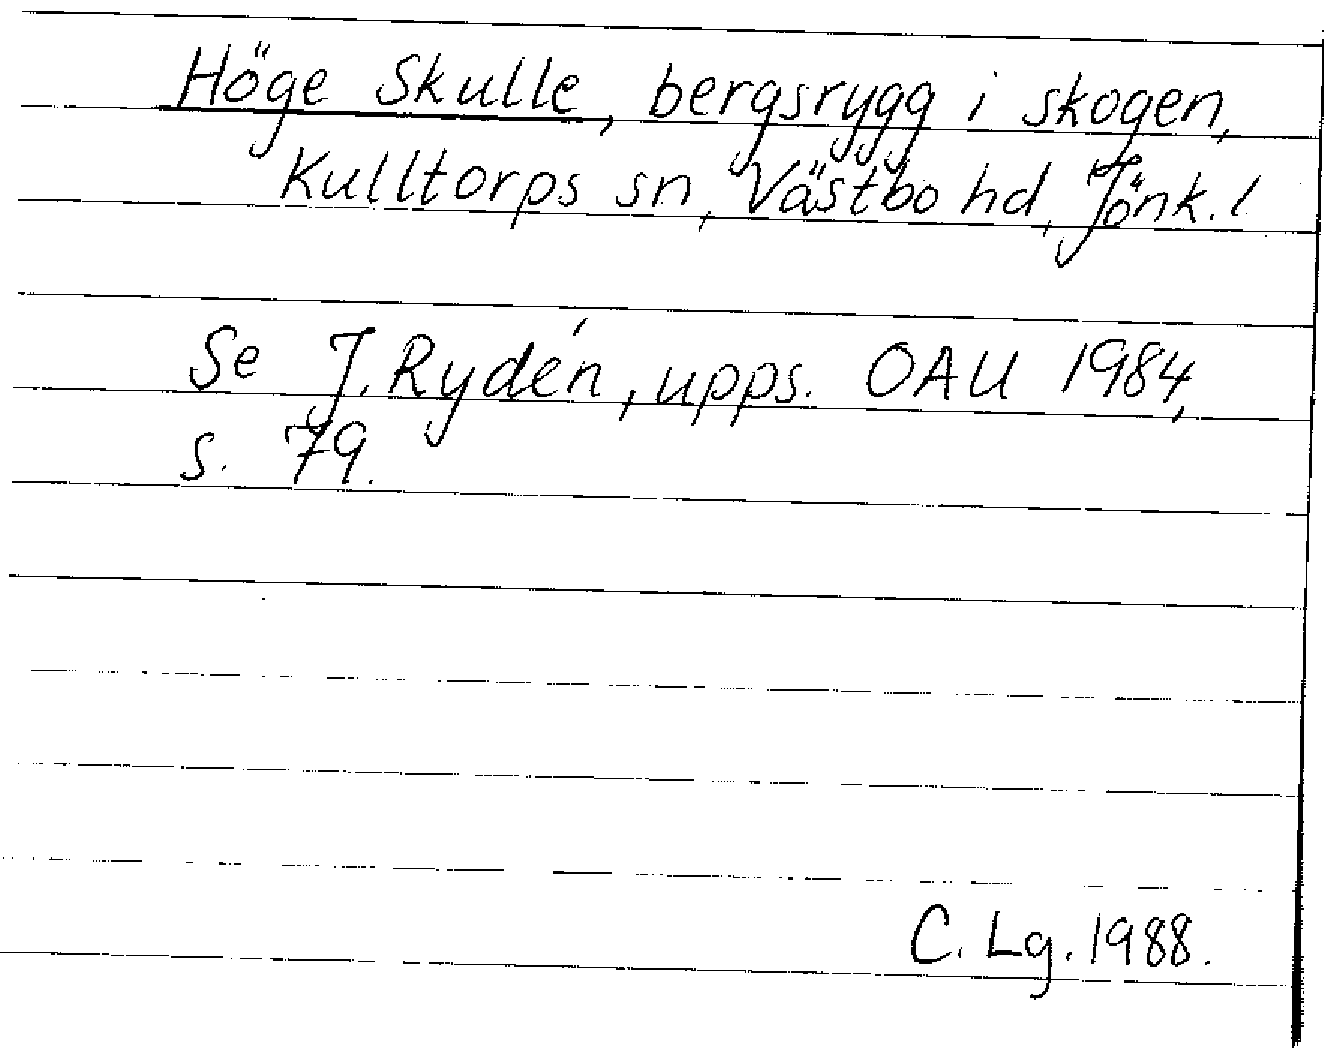 Höge Skulle, bergsrygg i skogen,
Kulltorps sn, Västbo hd, Jönk. l
Se J. Rydén, upps. OAU 1984,
s. 79.
C. Lg. 1988.